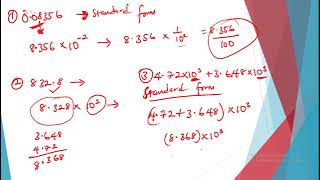 ① 0.08356 → Standard form
8.356 × 10⁻² → 8.356 × 1/10² = 8.356/100
② 832.8 →
8.328 × 10²
3.648
4.72
8.368
③ 4.72×10³ + 3.648×10³
Standard form
(4.72 + 3.648) × 10³
(8.368) × 10³